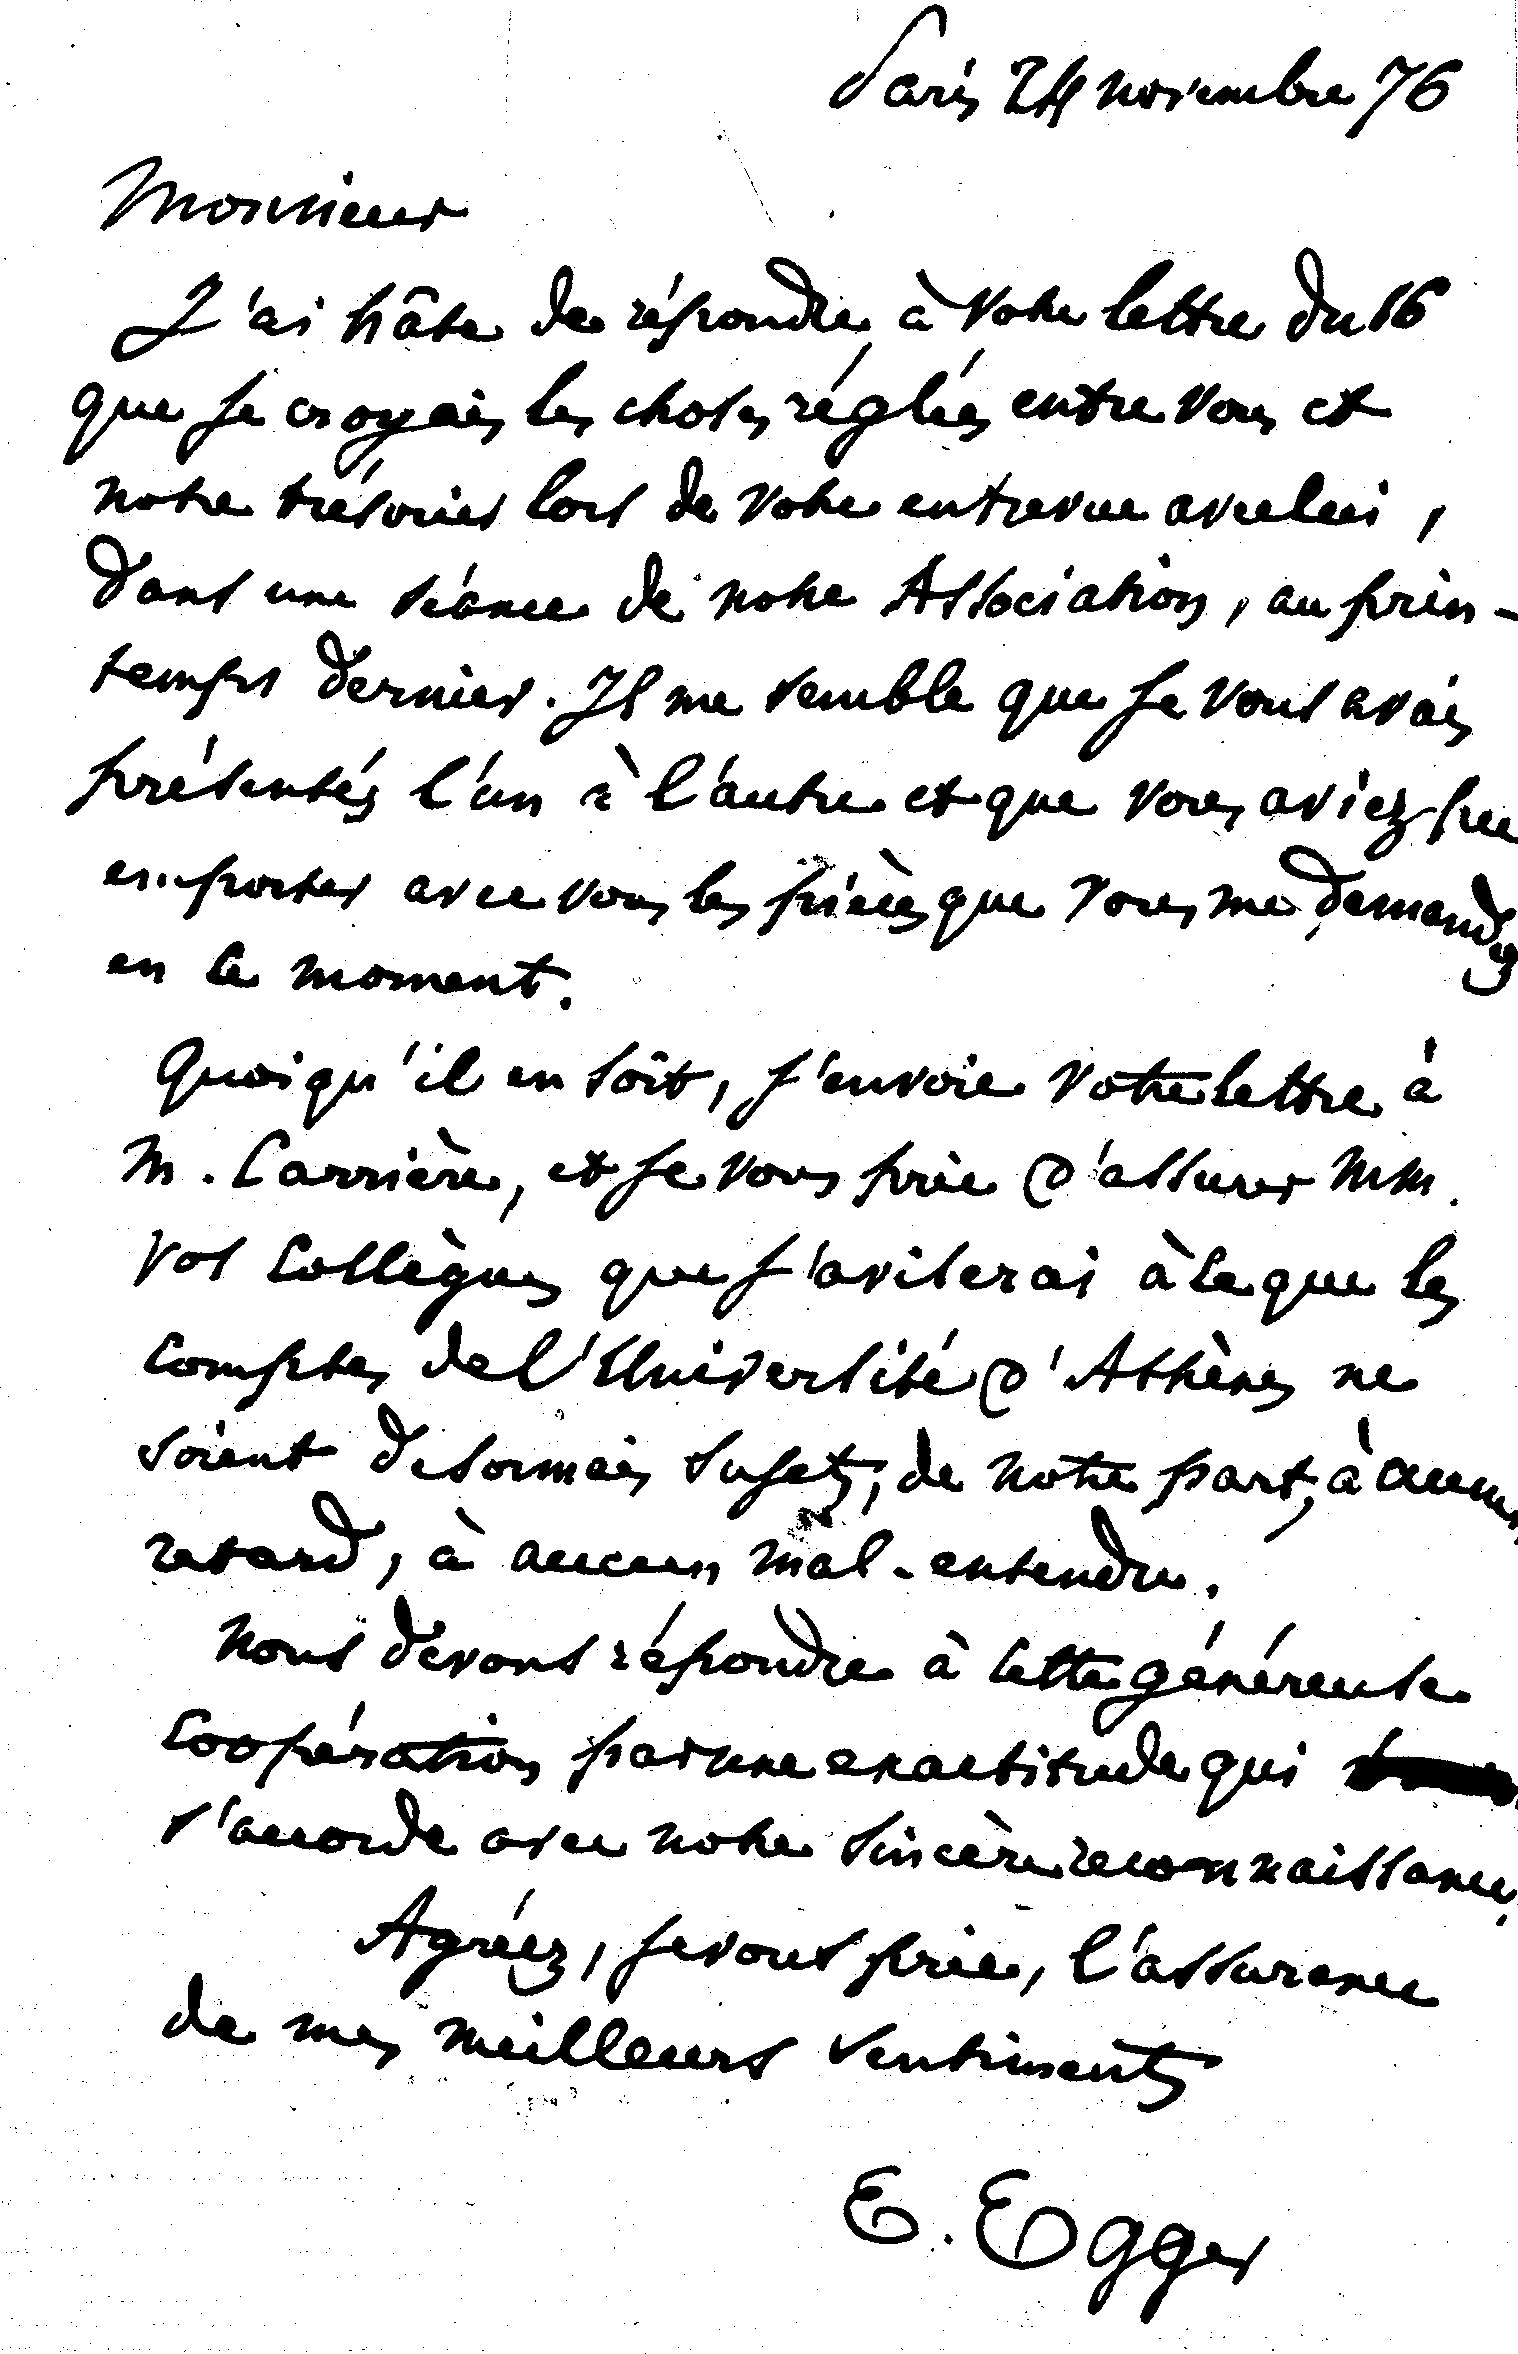 Paris 24 novembre 76
Monsieur
J'ai hâte de répondre à votre lettre du 16
que je croyais les choses réglées entre vous et
notre trésorier lors de votre entrevue avec lui,
dans une séance de notre Association, au prin-
temps dernier. Il me semble que je vous avais
présentés l'un à l'autre et que vous aviez pu
emporter avec vous les pièces que vous me demandez
en ce moment.
Quoiqu'il en soit, j'envoie votre lettre à
M. Carrière, et je vous prie d'assurer MM.
vos collègues que j'aviserai à ce que les
comptes de l'Université d'Athènes ne
soient desormais sujets, de notre part, à aucun
retard, à aucun mal-entendu.
Nous devons répondre à cette généreuse
coopération par une exactitude qui
s'accorde avec notre sincère reconnaissance.
Agréez, je vous prie, l'assurance
de mes meilleurs sentiments
E. Egger